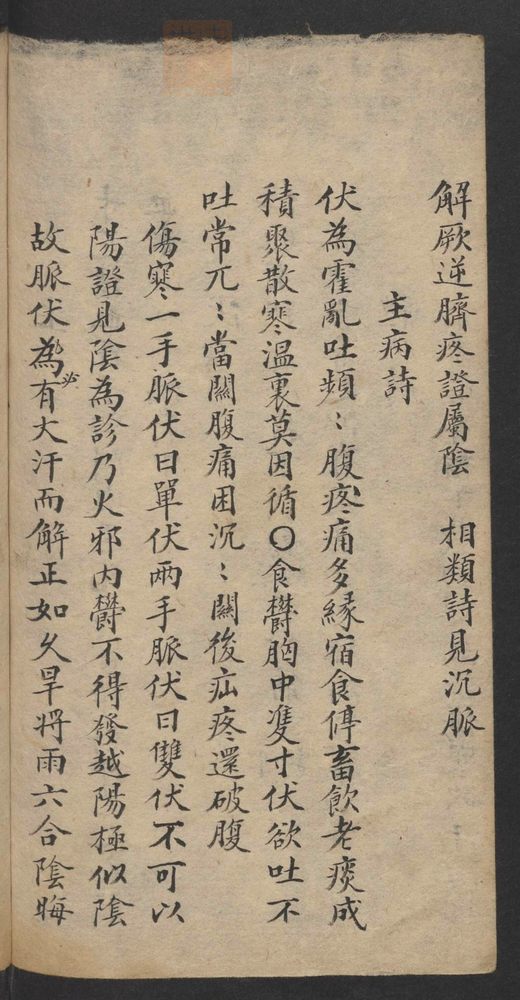 解厥逆臍疼證屬陰　相類詩見沉脈
主病詩
伏為霍亂吐頻〻腹疼痛多緣宿食停畜飲老痰成
積聚散寒温裏莫因循〇食欝胸中䨇寸伏欲吐不
吐常兀〻當關腹痛困沉〻關後疝疼還破腹
傷寒一手脈伏曰單伏兩手脈伏曰雙伏不可以
陽證見陰為診乃火邪内欝不得發越陽極似陰
故脈伏為必有大汗而解正如久旱將雨六合陰晦